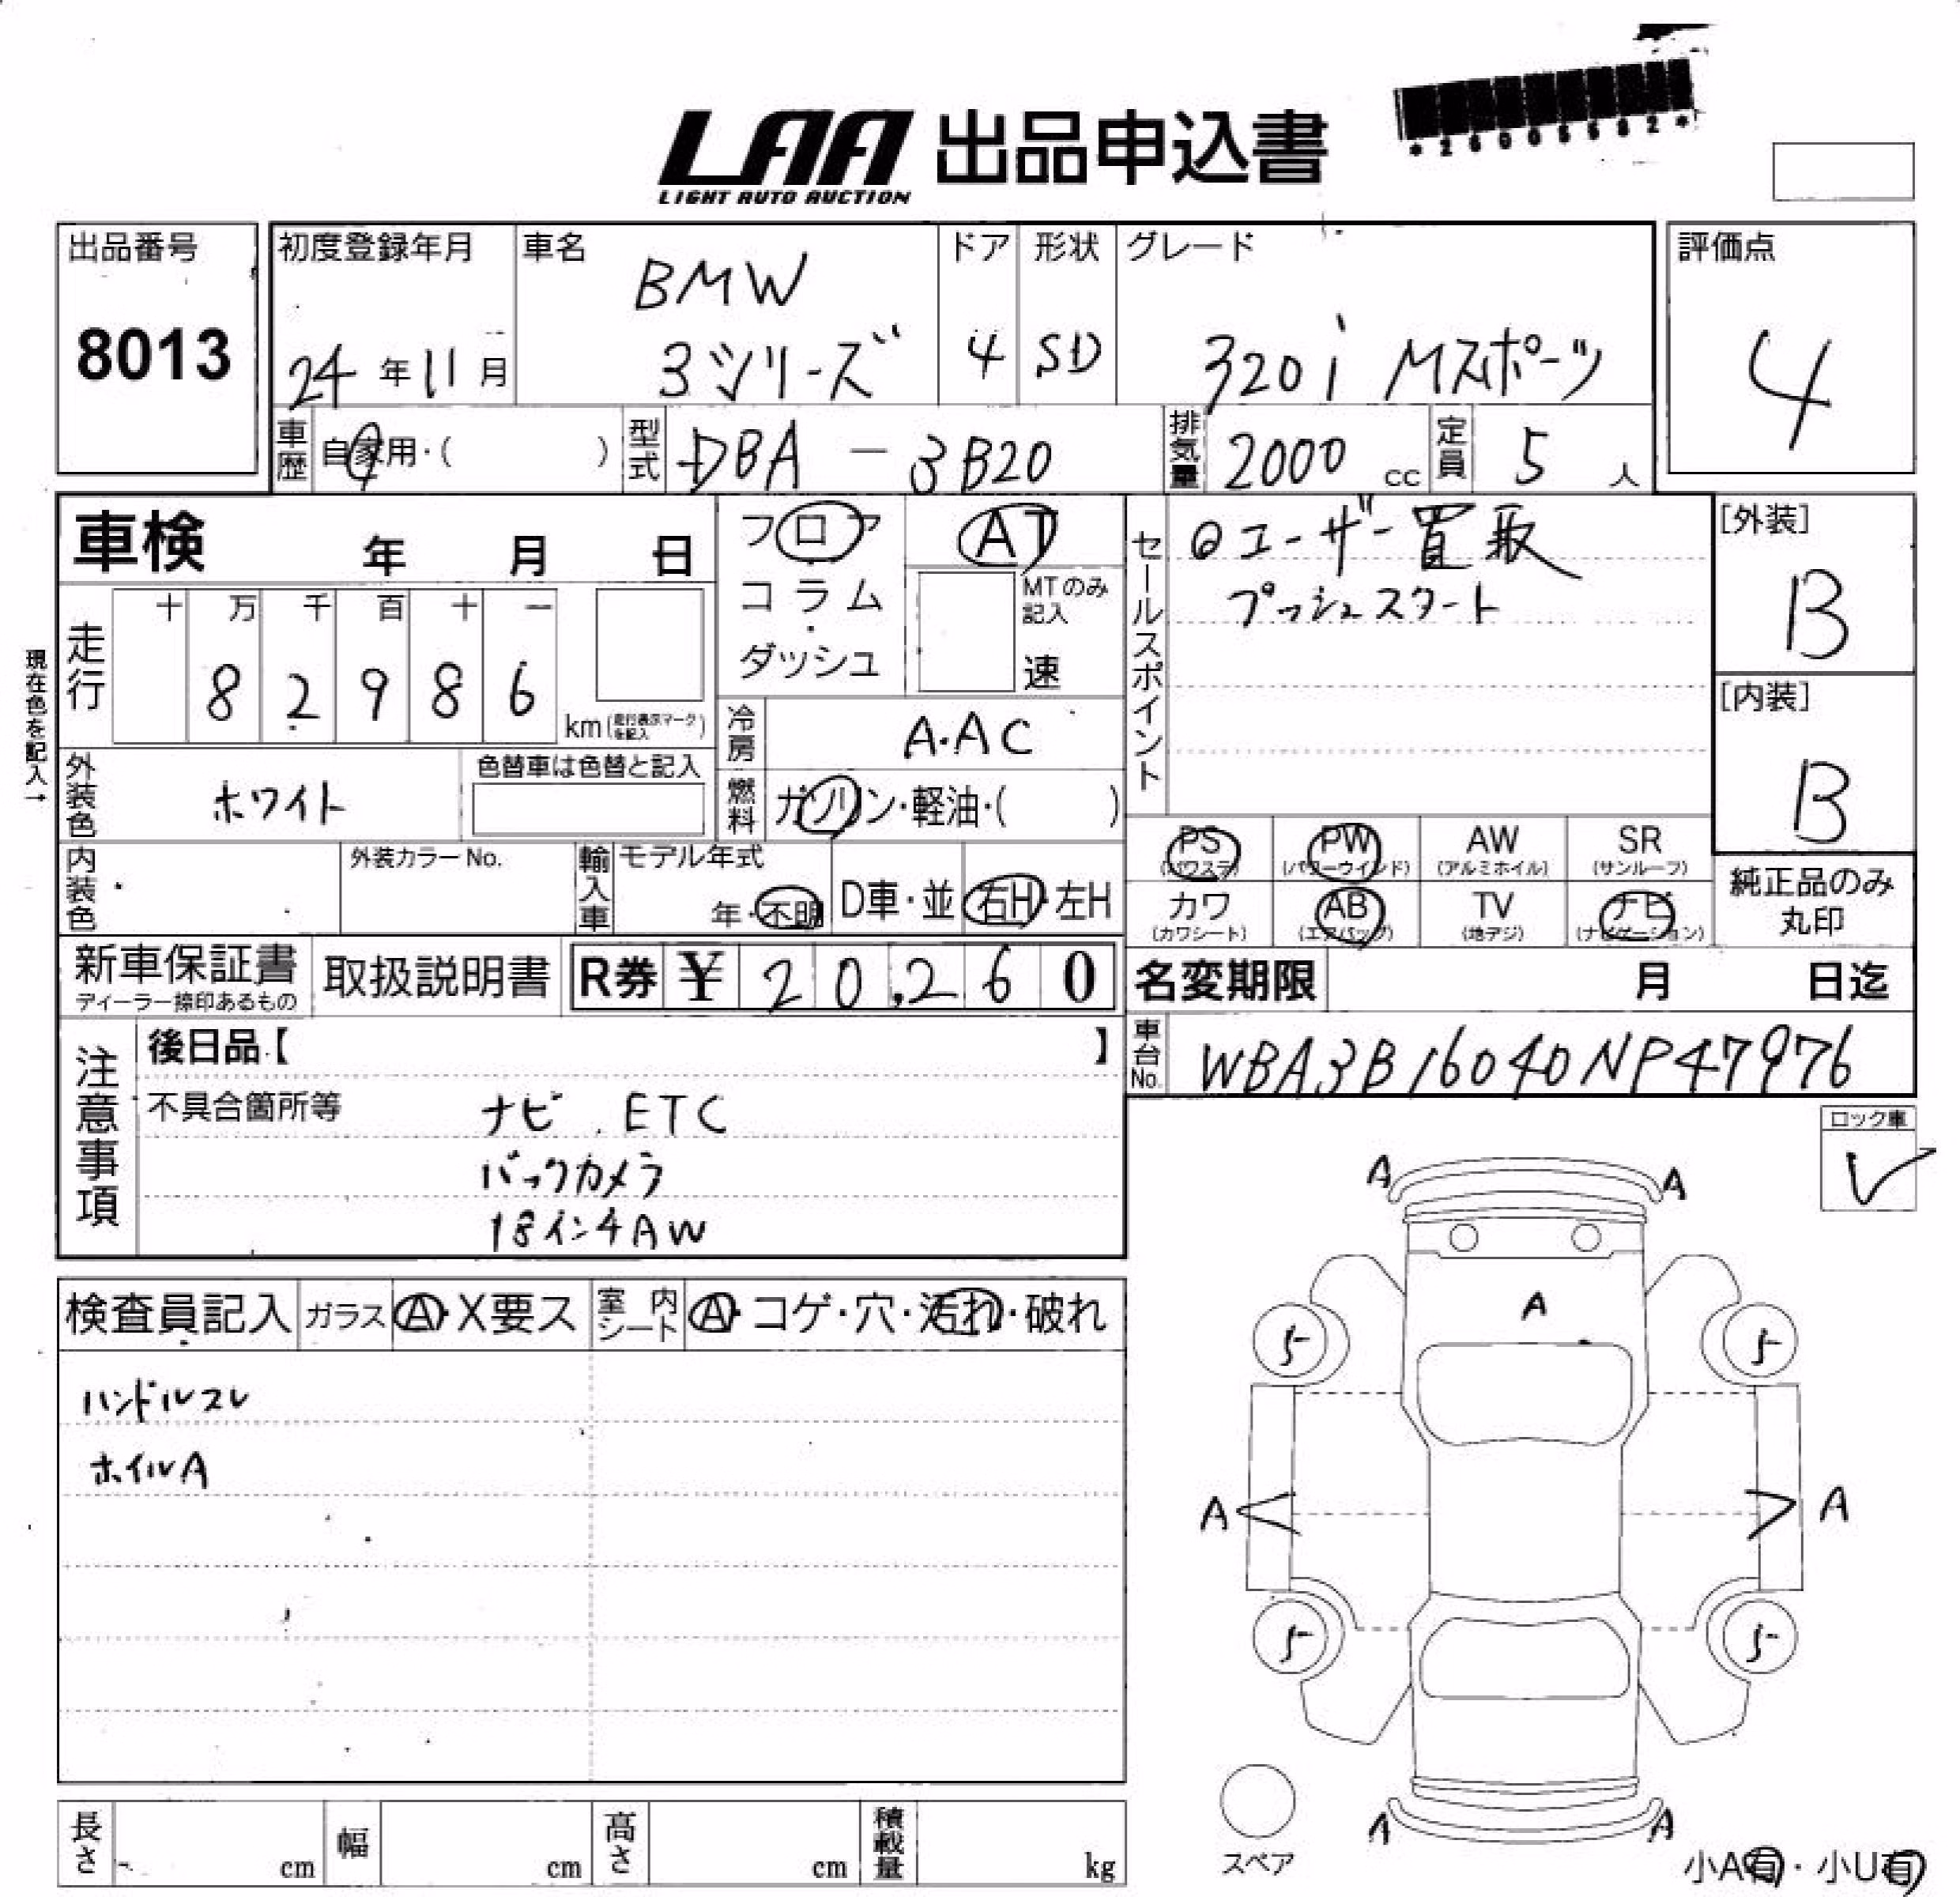 LAA 出品申込書
LIGHT AUTO AUCTION
*26005582*
出品番号
8013
初度登録年月
24年11月
車名
BMW
3シリーズ
ドア
4
形状
SD
グレード
320i Mスポーツ
評価点
4
車歴 自家用・( )
型式 DBA-3B20
排気量 2000 cc
定員 5 人
車検 年 月 日
フロア
コラム
・
ダッシュ
AT
MTのみ記入
速
セールスポイント
◎ユーザー買取
プッシュスタート
[外装]
B
[内装]
B
現在色を記入→
走行
十 万 千 百 十 一
8 2 9 8 6
km(走行表示マークを記入)
冷房 A.AC
外装色 ホワイト
色替車は色替と記入
燃料 ガソリン・軽油・( )
内装色
外装カラーNo.
輸入車
モデル年式
年・不明
D車・並
右H・左H
PS (パワステ)
PW (パワーウインド)
AW (アルミホイル)
SR (サンルーフ)
カワ (カワシート)
AB (エアバッグ)
TV (地デジ)
ナビ (ナビゲーション)
純正品のみ
丸印
新車保証書
ディーラー捺印あるもの
取扱説明書
R券 ¥ 20,260
名変期限 月 日迄
車台No. WBA3B16040NP47976
注意事項
後日品【 】
不具合箇所等
ナビ.ETC
バックカメラ
18インチAW
ロック車
検査員記入
ガラス A・X要ス
室内シート A・コゲ・穴・汚れ・破れ
ハンドルスレ
ホイルA
A A
A
5 5
A A
5 5
A A
スペア
小A有・小U有
長さ cm
幅 cm
高さ cm
積載量 kg